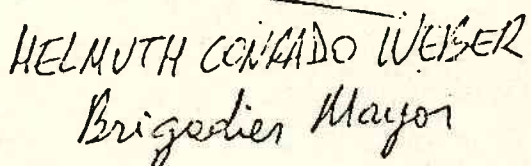 HELMUTH CONRADO WEBER
Brigadier Mayor